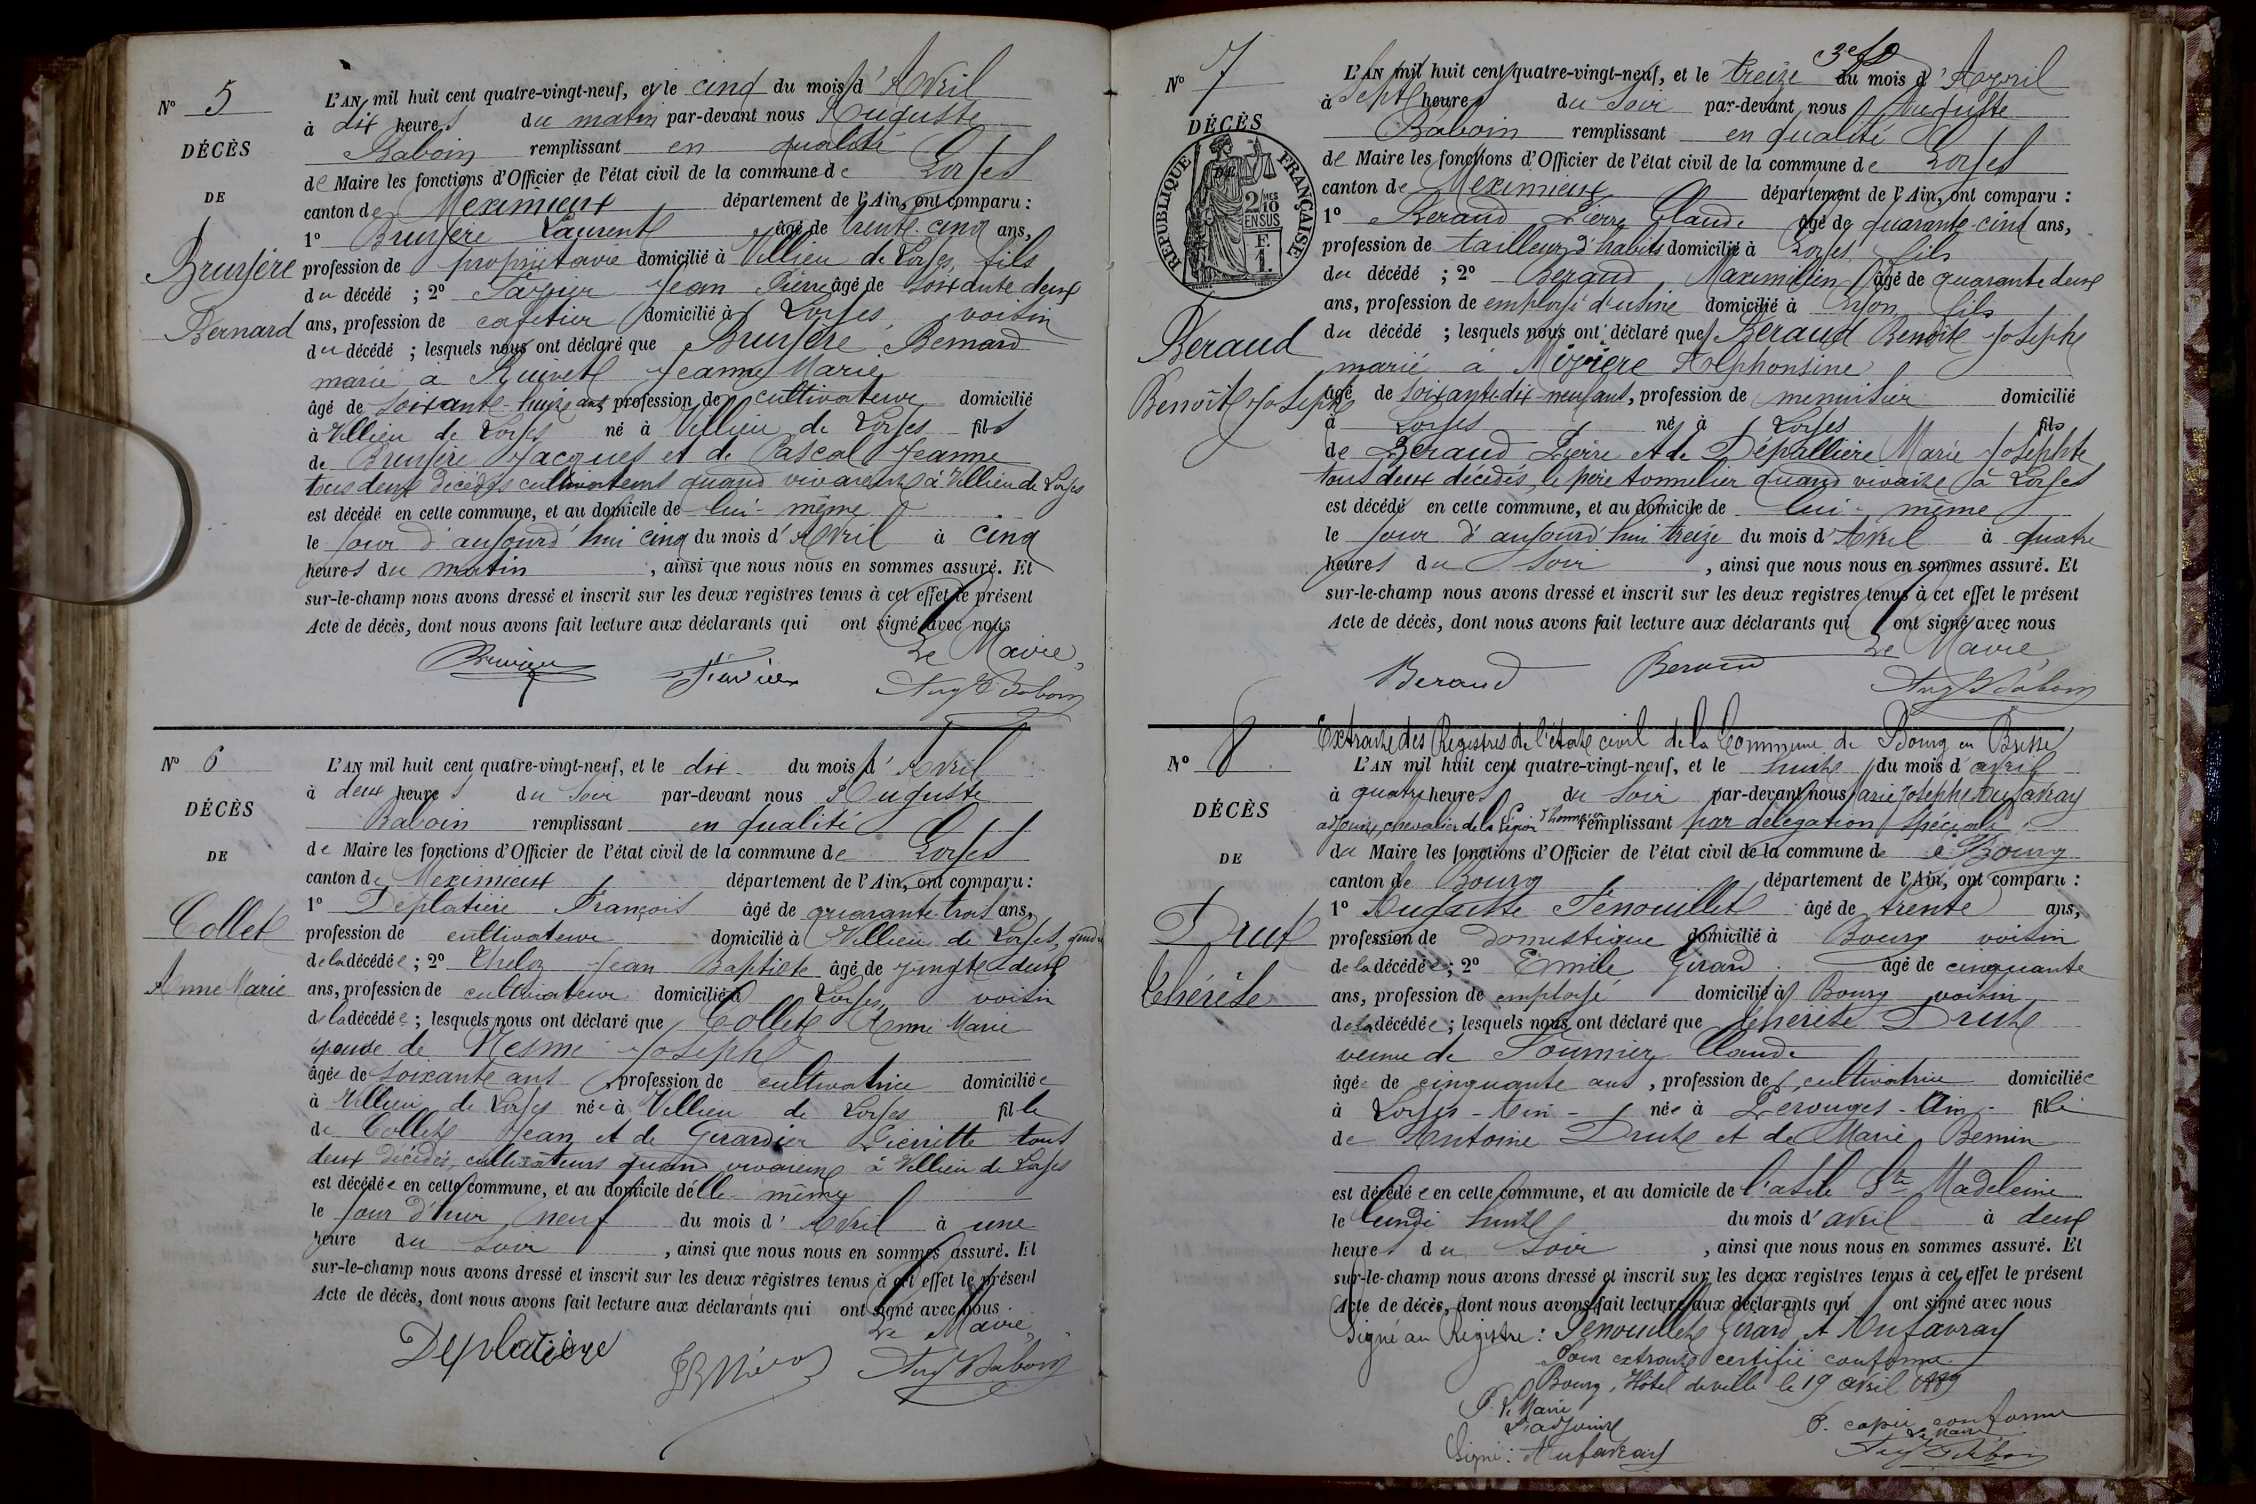 N° 5
DÉCÈS
DE
Bruyère
Bernard
L'AN mil huit cent quatre-vingt-neuf, et le cinq du mois d'Avril
à dix heures du matin par-devant nous Auguste
Baboin remplissant en qualité
de Maire les fonctions d'Officier de l'état civil de la commune de Loyes
canton de Meximieux département de l'Ain, ont comparu :
1° Bruyère Laurent âgé de trente-cinq ans,
profession de propriétaire domicilié à Villieu de Loyes, fils
du décédé ; 2° Jean Pierre âgé de soixante deux
ans, profession de cafetier domicilié à Loyes, voisin
du décédé ; lesquels nous ont déclaré que Bruyère Bernard
marié à Jeanne Marie
âgé de soixante ans profession de cultivateur domicilié
à Villieu de Loyes né à Villieu de Loyes fils
de Bruyère Jacques et de Pascal Jeanne
tous deux décédés cultivateurs quand vivaient à Villieu de Loyes
est décédé en cette commune, et au domicile de lui-même
le jour d'aujourd'hui cinq du mois d'Avril à cinq
heures du matin , ainsi que nous nous en sommes assuré. Et
sur-le-champ nous avons dressé et inscrit sur les deux registres tenus à cet effet le présent
Acte de décès, dont nous avons fait lecture aux déclarants qui ont signé avec nous
Le Maire,
Aug Baboin
N° 6
DÉCÈS
DE
Collet
Anne Marie
L'AN mil huit cent quatre-vingt-neuf, et le dix du mois d'Avril
à deux heures du soir par-devant nous Auguste
Baboin remplissant en qualité
de Maire les fonctions d'Officier de l'état civil de la commune de Loyes
canton de Meximieux département de l'Ain, ont comparu :
1° Déplatière François âgé de quarante-trois ans,
profession de cultivateur domicilié à Villieu de Loyes, gendre
de la décédée ; 2° Jean Baptiste âgé de vingt deux
ans, profession de cultivateur domicilié à Loyes, voisin
de la décédée ; lesquels nous ont déclaré que Collet Anne Marie
épouse de Mesme Joseph
âgée de soixante ans profession de cultivatrice domiciliée
à Villieu de Loyes née à Villieu de Loyes fille
de Collet Jean et de Girardier Pierrette tous
deux décédés, cultivateurs quand vivaient à Villieu de Loyes
est décédée en cette commune, et au domicile d'elle-même
le jour d'hier neuf du mois d'Avril à une
heure du soir , ainsi que nous nous en sommes assuré. Et
sur-le-champ nous avons dressé et inscrit sur les deux registres tenus à cet effet le présent
Acte de décès, dont nous avons fait lecture aux déclarants qui ont signé avec nous.
Le Maire,
Deplatière
Aug Baboin
N° 7
DÉCÈS
DE
RÉPUBLIQUE FRANÇAISE
Beraud
Benoît Joseph
L'AN mil huit cent quatre-vingt-neuf, et le treize du mois d'Avril
à sept heures du soir par-devant nous Auguste
Baboin remplissant en qualité
de Maire les fonctions d'Officier de l'état civil de la commune de Loyes
canton de Meximieux département de l'Ain, ont comparu :
1° Beraud Pierre Claude âgé de quarante-cinq ans,
profession de tailleur d'habits domicilié à Loyes, fils
du décédé ; 2° Beraud Maximilien âgé de quarante deux
ans, profession de employé d'usine domicilié à Lyon, fils
du décédé ; lesquels nous ont déclaré que Beraud Benoît Joseph
marié à Mizière Alphonsine
âgé de soixante-dix-neuf ans, profession de menuisier domicilié
à Loyes né à Loyes fils
de Beraud Pierre et de Dépallière Marie Josephte
tous deux décédés, le père tonnelier quand vivait à Loyes
est décédé en cette commune, et au domicile de lui-même
le jour d'aujourd'hui treize du mois d'Avril à quatre
heures du soir , ainsi que nous nous en sommes assuré. Et
sur-le-champ nous avons dressé et inscrit sur les deux registres tenus à cet effet le présent
Acte de décès, dont nous avons fait lecture aux déclarants qui ont signé avec nous
Le Maire,
Beraud Beraud Aug Baboin
N° 8
DÉCÈS
DE
Drut
Thérèse
Extrait des Registres de l'état civil de la Commune de Bourg en Bresse
L'AN mil huit cent quatre-vingt-neuf, et le huit du mois d'avril
à quatre heures du soir par-devant nous Marie Joseph Aufavray
adjoint, chevalier de la Légion d'honneur remplissant par délégation spéciale
du Maire les fonctions d'Officier de l'état civil de la commune de Bourg
canton de Bourg département de l'Ain, ont comparu :
1° Auguste Fenouillet âgé de trente ans,
profession de domestique domicilié à Bourg voisin
de la décédée ; 2° Emile Girard âgé de cinquante
ans, profession de employé domicilié à Bourg voisin
de la décédée ; lesquels nous ont déclaré que Thérèse Drut
veuve de Fournier Claude
âgée de cinquante ans, profession de cultivatrice domiciliée
à Loyes - Ain - née à Perouges - Ain - fille
de Antoine Drut et de Marie Bernin
est décédée en cette commune, et au domicile de l'asile Ste Madeleine
le lundi huit du mois d'avril à deux
heures du soir , ainsi que nous nous en sommes assuré. Et
sur-le-champ nous avons dressé et inscrit sur les deux registres tenus à cet effet le présent
Acte de décès, dont nous avons fait lecture aux déclarants qui ont signé avec nous
Signé au Registre : Fenouillet, Girard et Aufavray
Pour extrait certifié conforme
Bourg, Hôtel de ville le 19 avril 1889
P. le Maire
L'adjoint
Signé : Aufavray
P. copie conforme
Le Maire
Aug Baboin